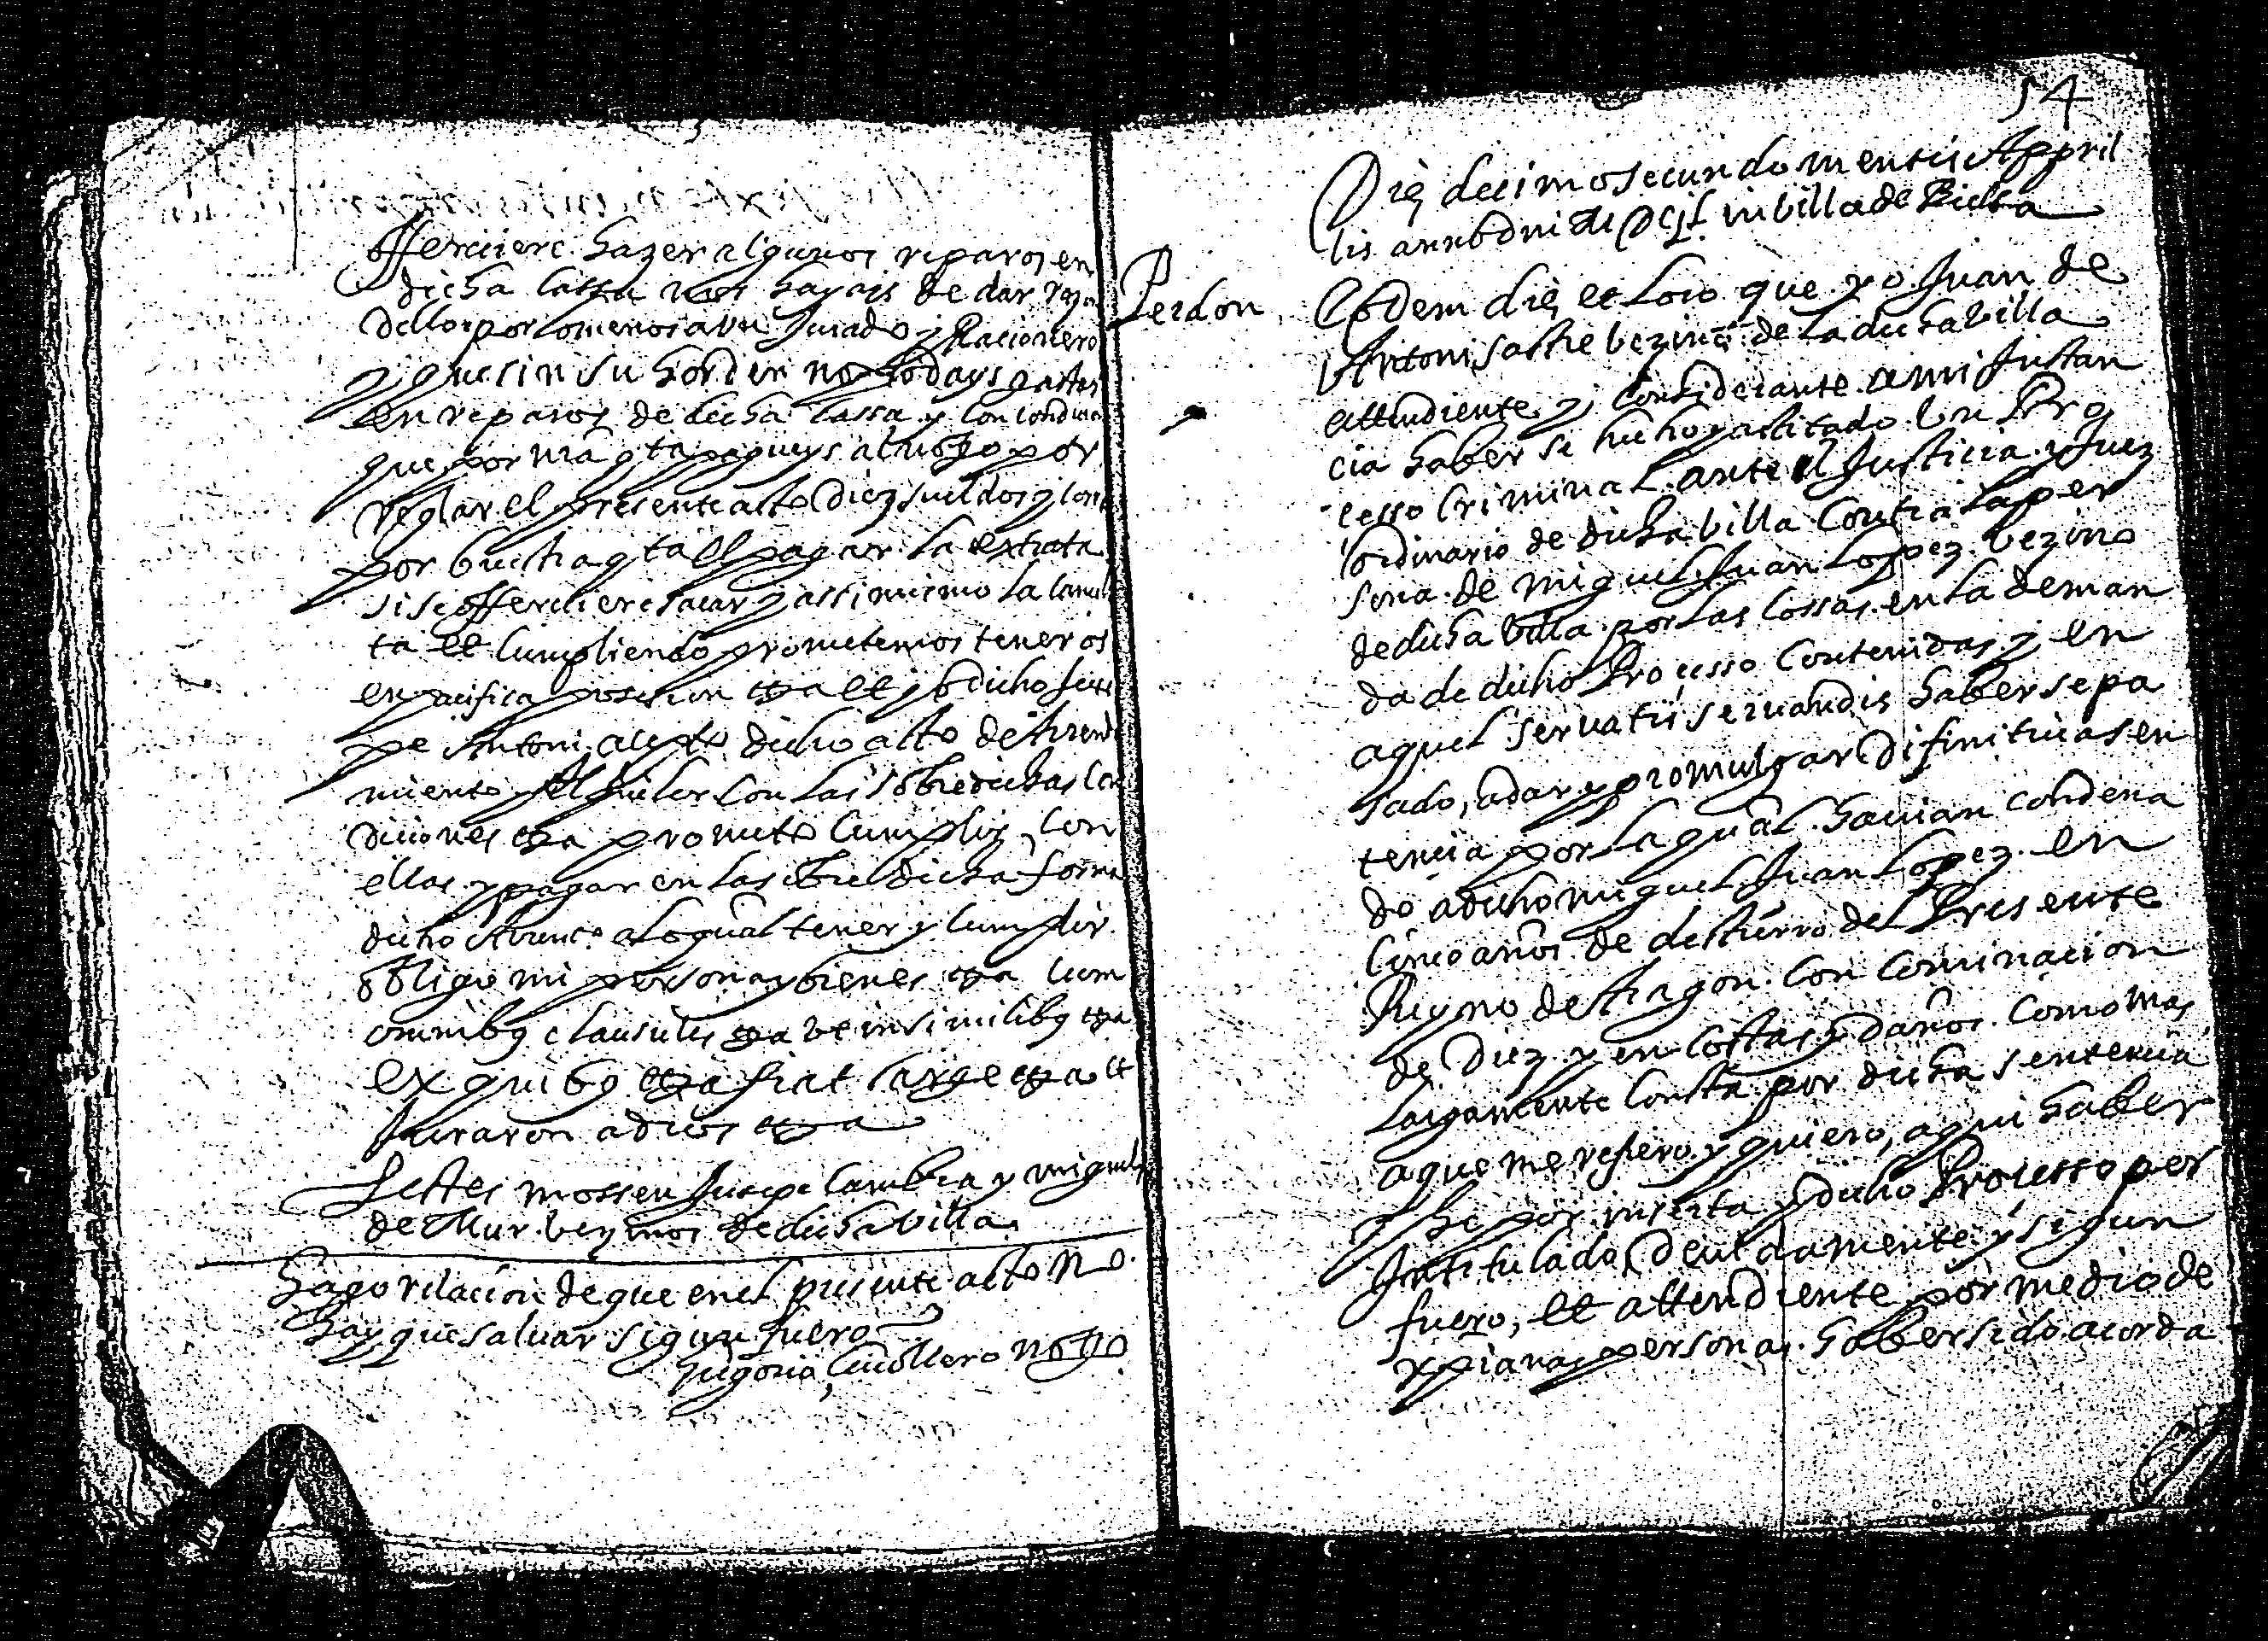 offereciere hazer algunos reparos en
dicha cassa nos hayais de dar raza
dello por lo menos a un Jurado y Racionero
y que sin su horden no podays gastar
en reparos de dicha cassa y con condicio
que por nra qta pagueys al notto por
reglar el presente acto diez sueldos y con
por vuestra qta el pagar la extrata
si se offereciere sacar y assi mismo la
ta et cumpliendo prometemos teneros
en pacifica posesion etca et yo dicho
pe Antoni acepto dicho acto de Arrenda
miento y Alquiler con las sobredichas con
diciones etca prometo cumplir con
ellas y pagar en la sobredicha forma
dicho Arrento a lo qual tener y cumplir
obligo mi persona y bienes etca cum
omnibq clausulis etca ut in similibq etca
ex quibq etca fiat large etca et
Juraron a dios etca
Testes mossen Jusepe Cambra y miguel
de Mur vezinos de dicha villa
Hago relacion de que en el presente acto no
hay que salvar segun fuero
Gregorio Cavollero notto
54
Die decimo secundo mensis Appril
lis anno dni in villa de Ricla
Perdon
Eodem die et loco que yo Juan de
Antoni sastre vezino de la dicha villa
attendiente y considerante a mi Instan
cia haber se hecho y actitado un Pro
cesso Criminal ante el Justicia y Juez
hordinario de dicha villa Contra la per
sona de miguel Juan Lopez vezino
de dicha villa por las cossas en la deman
da de dicho Processo Contenidas y en
aquel servatis servandis haberse pa
sado, a dar y promulgar difinitiva sen
tencia por la qual havian condena
do a dicho miguel Juan Lopez en
Cinco años de destierro del Presente
Reyno de Aragon con Cominacion
de Diez y en costas y daños como mas
largamente Consta por dicha sentencia
a que me refiero y quiero, aqui haber
se por inserta y dicho Processo per
Intitulado Devidamente y segun
fuero, et attendiente por medio de
xpianas personas haber sido acorda